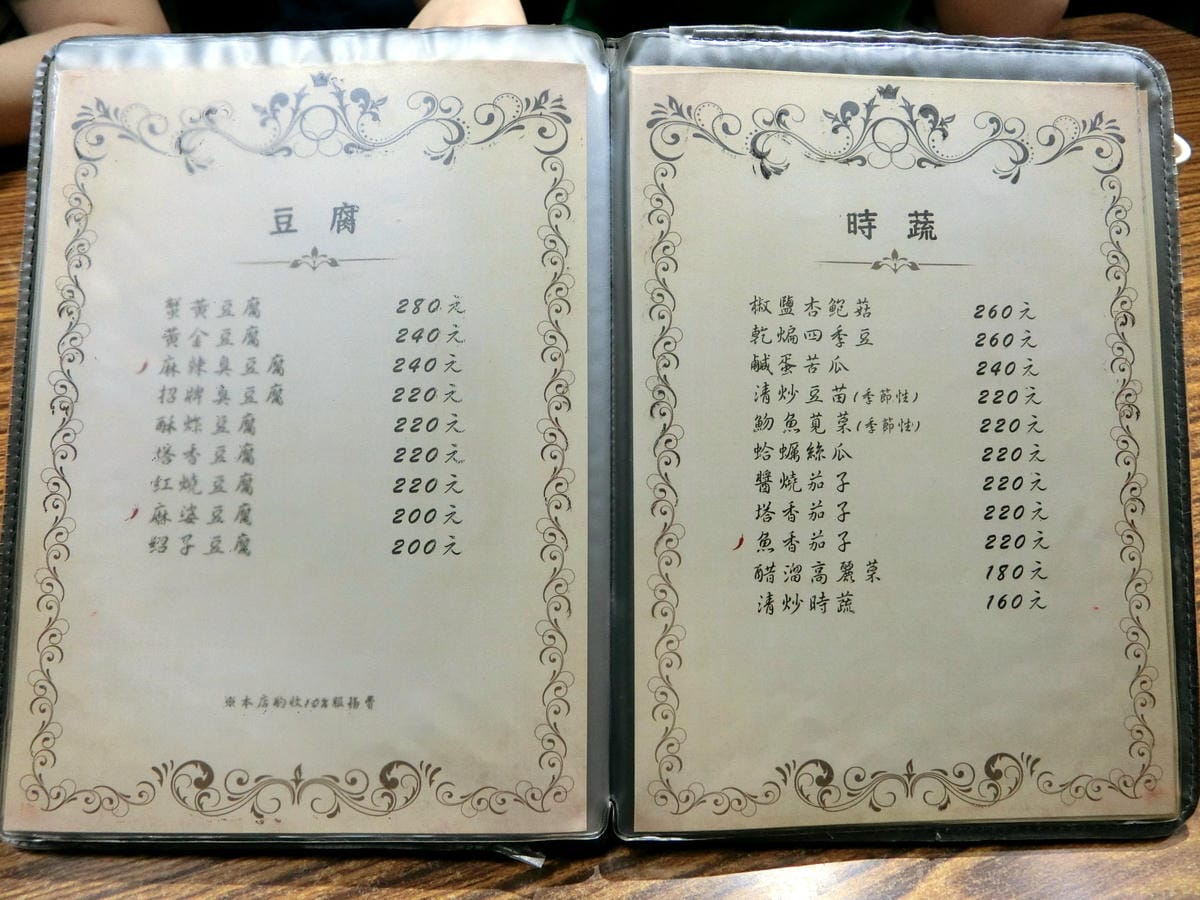 豆腐
蟹黃豆腐 280元
黃金豆腐 240元
麻辣臭豆腐 240元
招牌臭豆腐 220元
酥炸豆腐 220元
塔香豆腐 220元
紅燒豆腐 220元
麻婆豆腐 200元
紹子豆腐 200元
※本店酌收10%服務費
時蔬
椒鹽杏鮑菇 260元
乾煸四季豆 260元
鹹蛋苦瓜 240元
清炒豆苗(季節性) 220元
魩魚莧菜(季節性) 220元
蛤蠣絲瓜 220元
醬燒茄子 220元
塔香茄子 220元
魚香茄子 220元
醋溜高麗菜 180元
清炒時蔬 160元